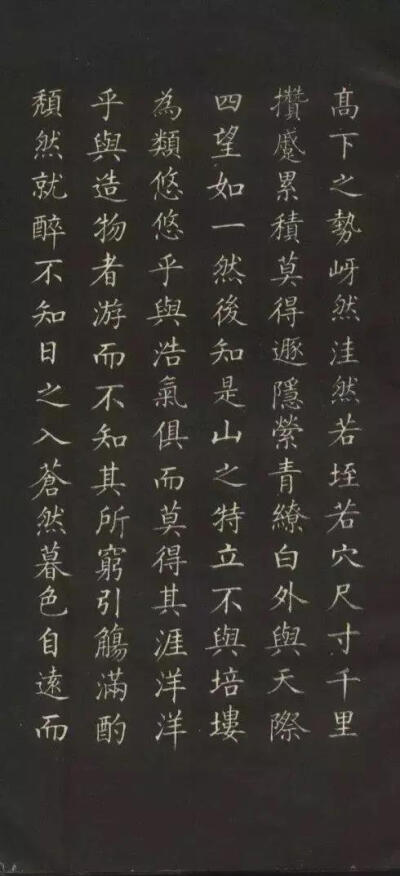 高下之勢岈然洼然若垤若穴尺寸千里
攢蹙累積莫得遯隱縈青繚白外與天際
四望如一然後知是山之特立不與培塿
為類悠悠乎與浩氣俱而莫得其涯洋洋
乎與造物者游而不知其所窮引觴滿酌
頹然就醉不知日之入蒼然暮色自遠而